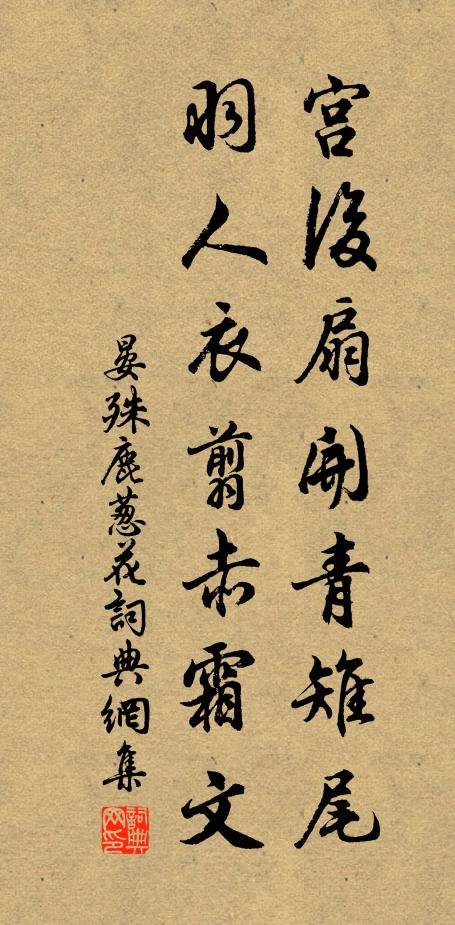 宮後扇開青雉尾
羽人衣翦赤霜文
晏殊鹿蔥花詞典網集
詞典网印